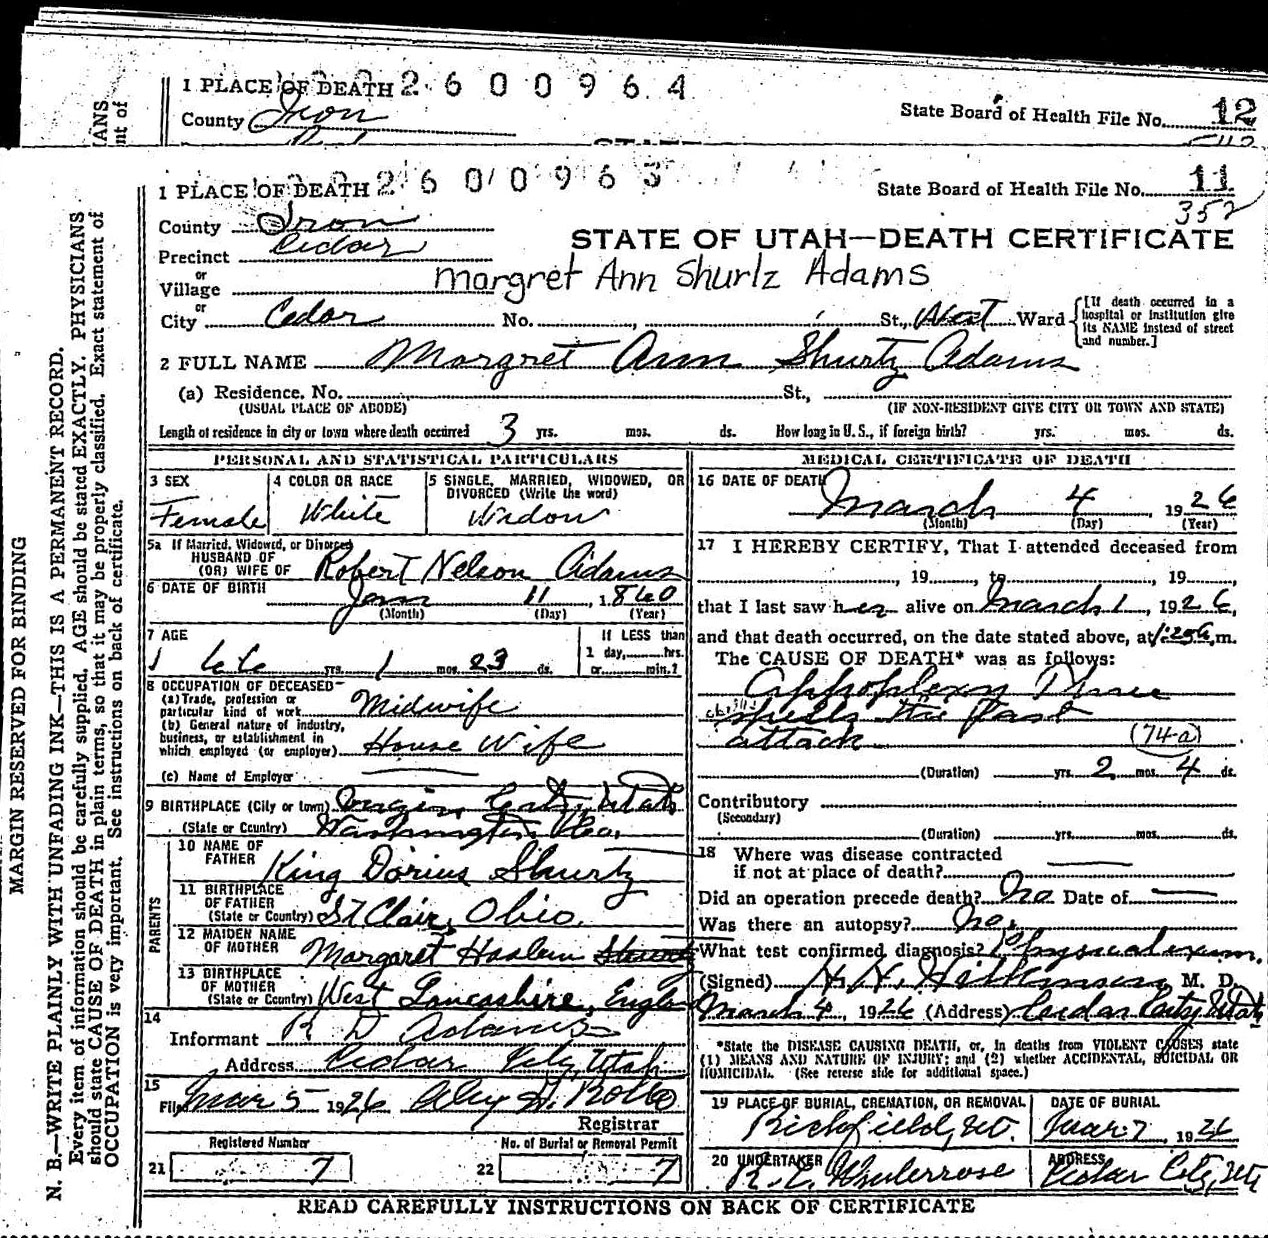 1 PLACE OF DEATH 2 6 0 0 9 6 4
County Iron
State Board of Health File No. 12
ANS
nt of
1 PLACE OF DEATH 2 6 0 0 9 6 3
State Board of Health File No. 11
352
County Iron
STATE OF UTAH—DEATH CERTIFICATE
Precinct Cedar
Margret Ann Shurlz Adams
or
Village
or
City Cedar No. , St., West Ward
[If death occurred in a hospital or institution give its NAME instead of street and number.]
2 FULL NAME Margret Ann Shurtz Adams
(a) Residence. No. St.,
(USUAL PLACE OF ABODE) (IF NON-RESIDENT GIVE CITY OR TOWN AND STATE)
Length of residence in city or town where death occurred 3 yrs. mos. ds. How long in U. S., if foreign birth? yrs. mos. ds.
PERSONAL AND STATISTICAL PARTICULARS
3 SEX
Female
4 COLOR OR RACE
White
5 SINGLE, MARRIED, WIDOWED, OR
DIVORCED (Write the word)
Widow
5a If Married, Widowed, or Divorced
HUSBAND OF
(OR) WIFE OF Robert Nelson Adams
6 DATE OF BIRTH Jan 11, 1860
(Month) (Day) (Year)
7 AGE
66 yrs. 1 mos. 23 ds.
If LESS than
1 day, hrs.
or min.?
8 OCCUPATION OF DECEASED
(a) Trade, profession or
particular kind of work Midwife
(b) General nature of industry,
business, or establishment in
which employed (or employer) House Wife
(c) Name of Employer
9 BIRTHPLACE (City or town) Virgin City, Utah
(State or Country) Washington Co.
PARENTS
10 NAME OF
FATHER King Dorius Shurtz
11 BIRTHPLACE
OF FATHER
(State or Country) St Clair, Ohio
12 MAIDEN NAME
OF MOTHER Margaret Haslem Shurtz
13 BIRTHPLACE
OF MOTHER
(State or Country) West Lancashire, England
14
Informant R D Adams
Address Cedar City, Utah
15
File Mar 5 1926
Registrar
Registered Number
21 7
No. of Burial or Removal Permit
22 7
MEDICAL CERTIFICATE OF DEATH
16 DATE OF DEATH
March 4 1926
(Month) (Day) (Year)
17 I HEREBY CERTIFY, That I attended deceased from
, 19 , to , 19 ,
that I last saw her alive on March 1, 1926,
and that death occurred, on the date stated above, at m.
The CAUSE OF DEATH* was as follows:
Appoplexy Three
spells the last
attack
(74-a)
(Duration) yrs. 2 mos. 4 ds.
Contributory
(Secondary)
(Duration) yrs. mos. ds.
18 Where was disease contracted
if not at place of death?
Did an operation precede death? No Date of
Was there an autopsy? No.
What test confirmed diagnosis? Physical exam.
(Signed) M. D.
March 4, 1926 (Address) Cedar City Utah
*State the DISEASE CAUSING DEATH, or, in deaths from VIOLENT CAUSES state
(1) MEANS AND NATURE OF INJURY; and (2) whether ACCIDENTAL, SUICIDAL OR
HOMICIDAL. (See reverse side for additional space.)
19 PLACE OF BURIAL, CREMATION, OR REMOVAL
Richfield, Ut.
DATE OF BURIAL
Mar. 7, 1926
20 UNDERTAKER
ADDRESS
Cedar City, Ut
READ CAREFULLY INSTRUCTIONS ON BACK OF CERTIFICATE
MARGIN RESERVED FOR BINDING
N. B.—WRITE PLAINLY WITH UNFADING INK—THIS IS A PERMANENT RECORD.
Every item of information should be carefully supplied. AGE should be stated EXACTLY. PHYSICIANS
should state CAUSE OF DEATH in plain terms, so that it may be properly classified. Exact statement of
OCCUPATION is very important. See instructions on back of certificate.